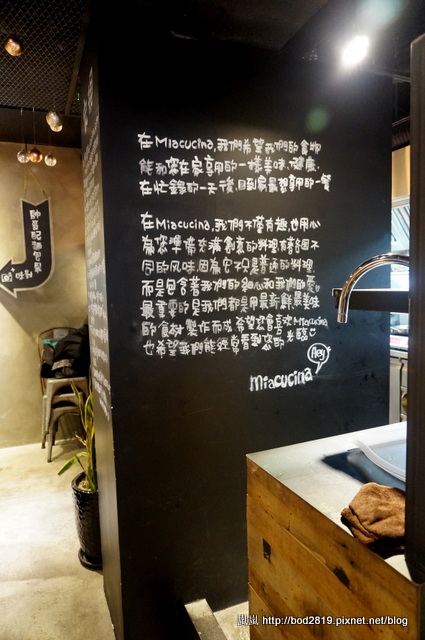 在Miacucina,我們希望我們的食物
能和您在家享用的一樣美味、健康.
在忙錄的一天後,回到家最想享用的一餐
在Miacucina,我們不僅有趣,也用心
為您準備充滿創意的料理有著與眾不
同的風味.因為它不只是普通的料理.
而是包含著我們的細心和我們的愛
最重要的是我們都是用最新鮮最美味
的食材製作而成,希望您會喜歡Miacucina
也希望我們能經常看到您的光臨
Hey
miacucina
http://bod2819.pixnet.net/blog